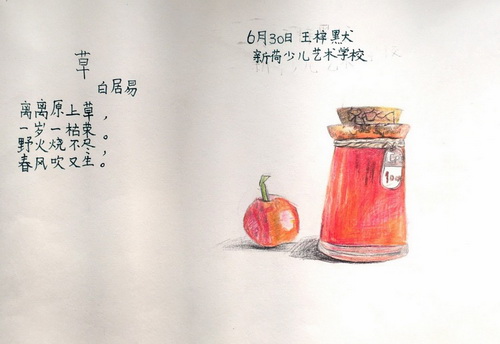 草
白居易
离离原上草，
一岁一枯荣。
野火烧不尽，
春风吹又生。
6月30日 王梓默
新荷少儿艺术学校